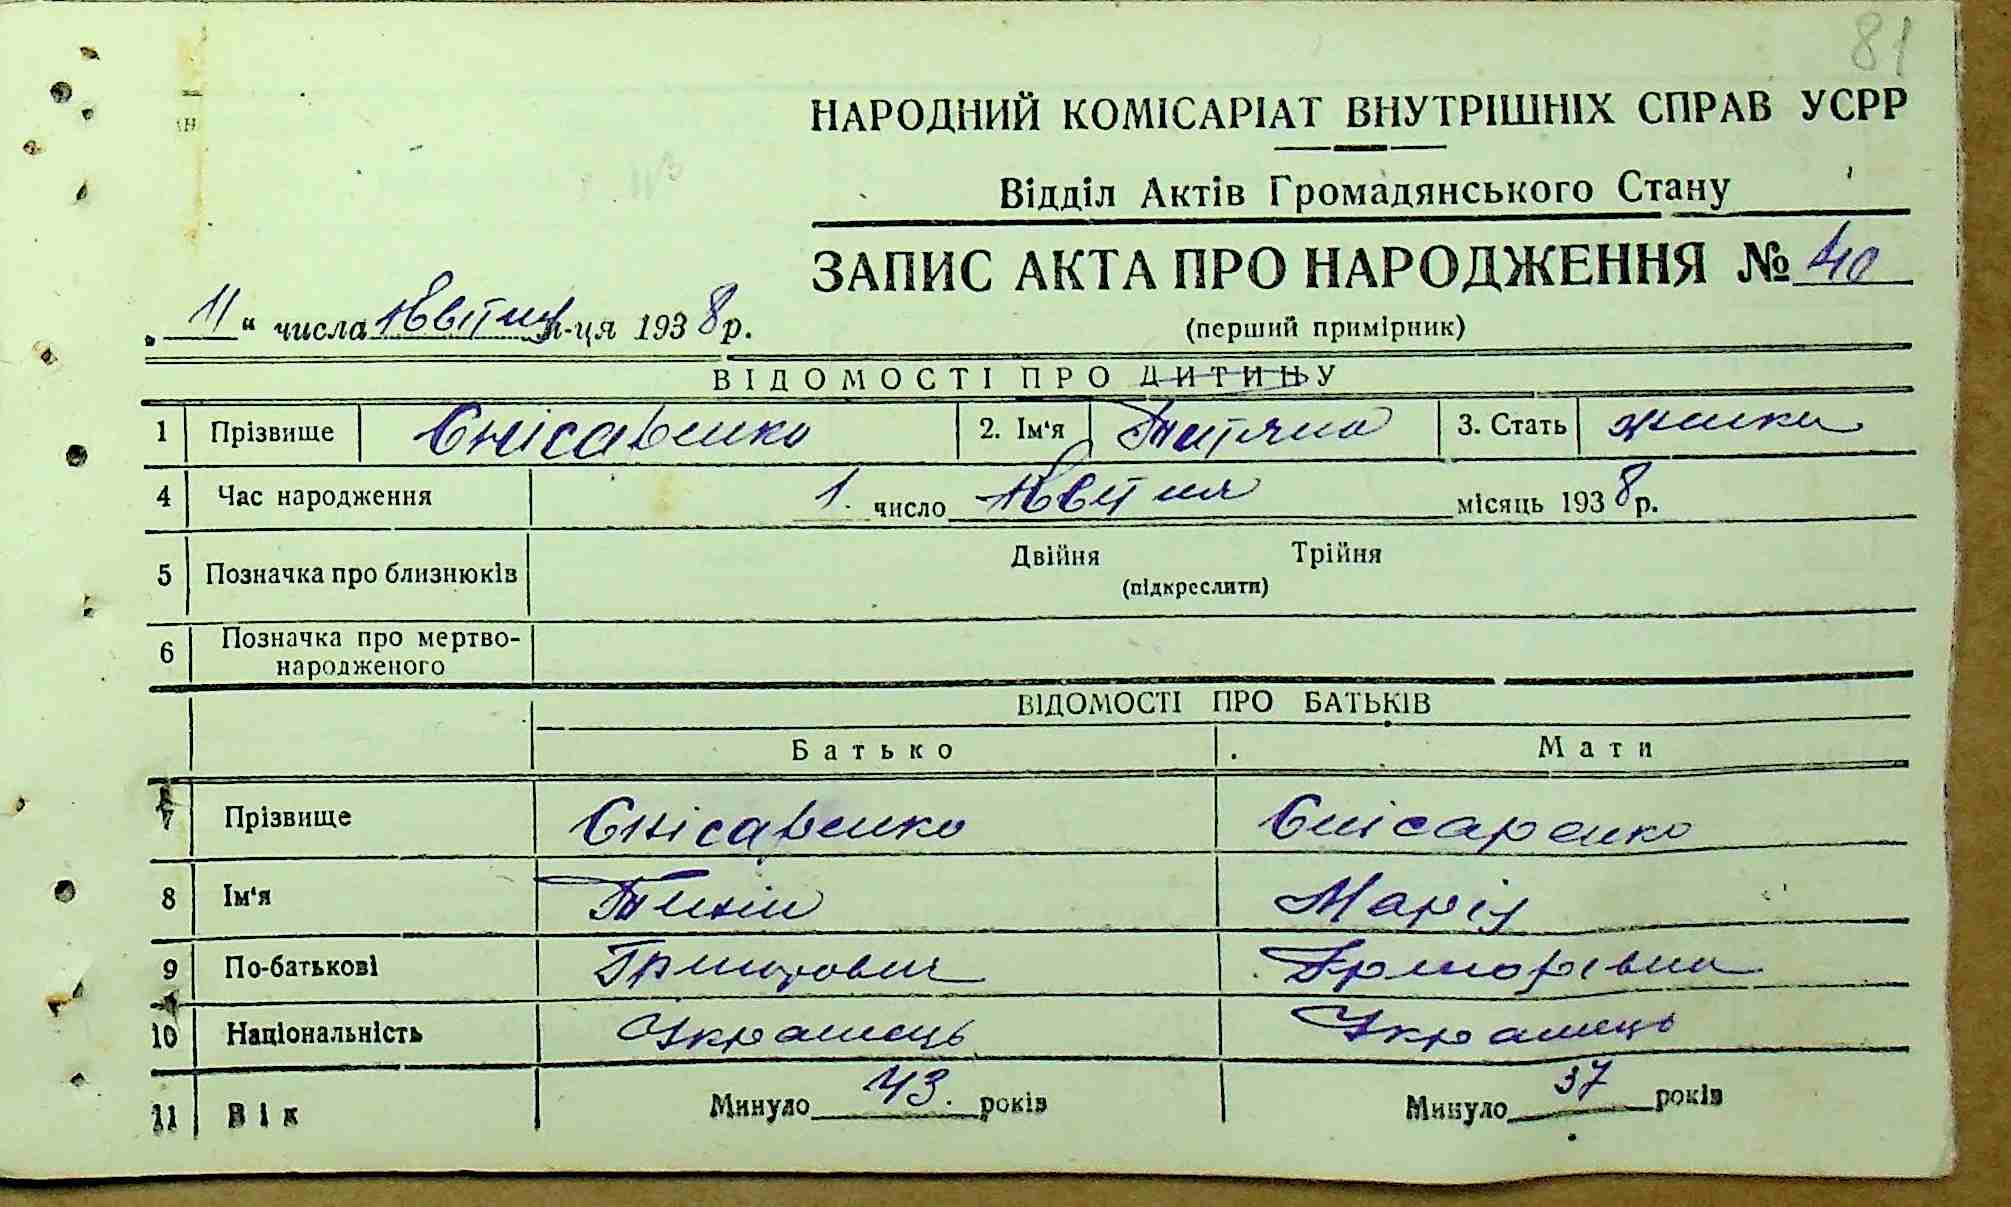 81
НАРОДНИЙ КОМІСАРІАТ ВНУТРІШНІХ СПРАВ УСРР
Відділ Актів Громадянського Стану
ЗАПИС АКТА ПРО НАРОДЖЕННЯ № 40
„ 11 “ числа Квітня м-ця 1938 р.
(перший примірник)
ВІДОМОСТІ ПРО ДИТИНУ
1 Прізвище Єнісаренко 2. Ім‘я Татяна 3. Стать жіноч
4 Час народження 1 число Квітня місяць 1938 р.
5 Позначка про близнюків Двійня Трійня
(підкреслити)
6 Позначка про мертво-
народженого
ВІДОМОСТІ ПРО БАТЬКІВ
Батько Мати
7 Прізвище Єнісаренко Єнісаренко
8 Ім‘я Тихін Марія
9 По-батькові Григорович Григорівна
10 Національність Українець Українець
11 Вік Минуло 43. років Минуло 37 років